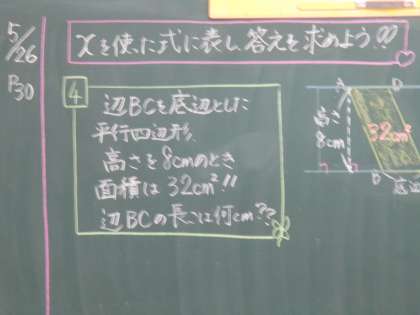 5/26
P30
xを使った式に表し答えを求めよう!!
4
辺BCを底辺とした
平行四辺形、
高さを8cmのとき
面積は32cm²!!
辺BCの長さは何cm??
A
D
高さ
8cm
32cm²
B
底辺